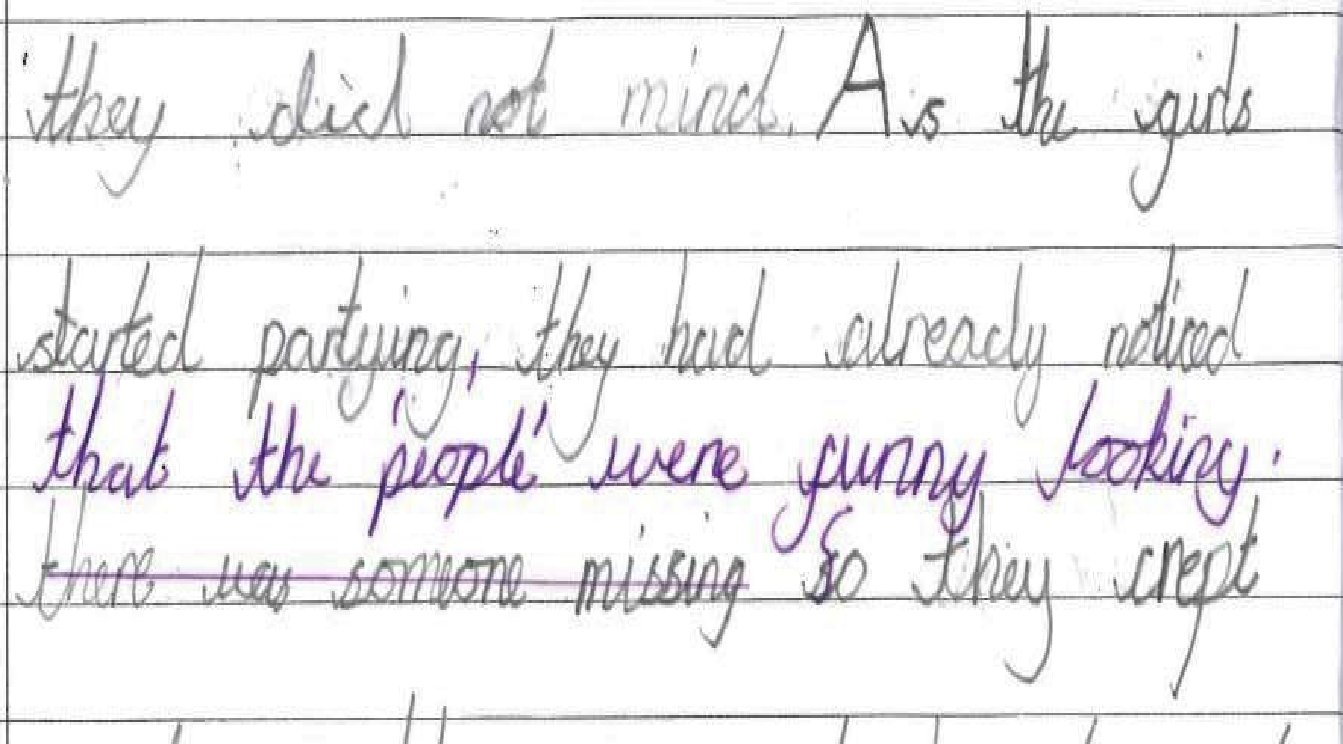 they did not mind. As the girls
started partying, they had already noticed
that the 'people' were funny looking.
there was someone missing So they crept